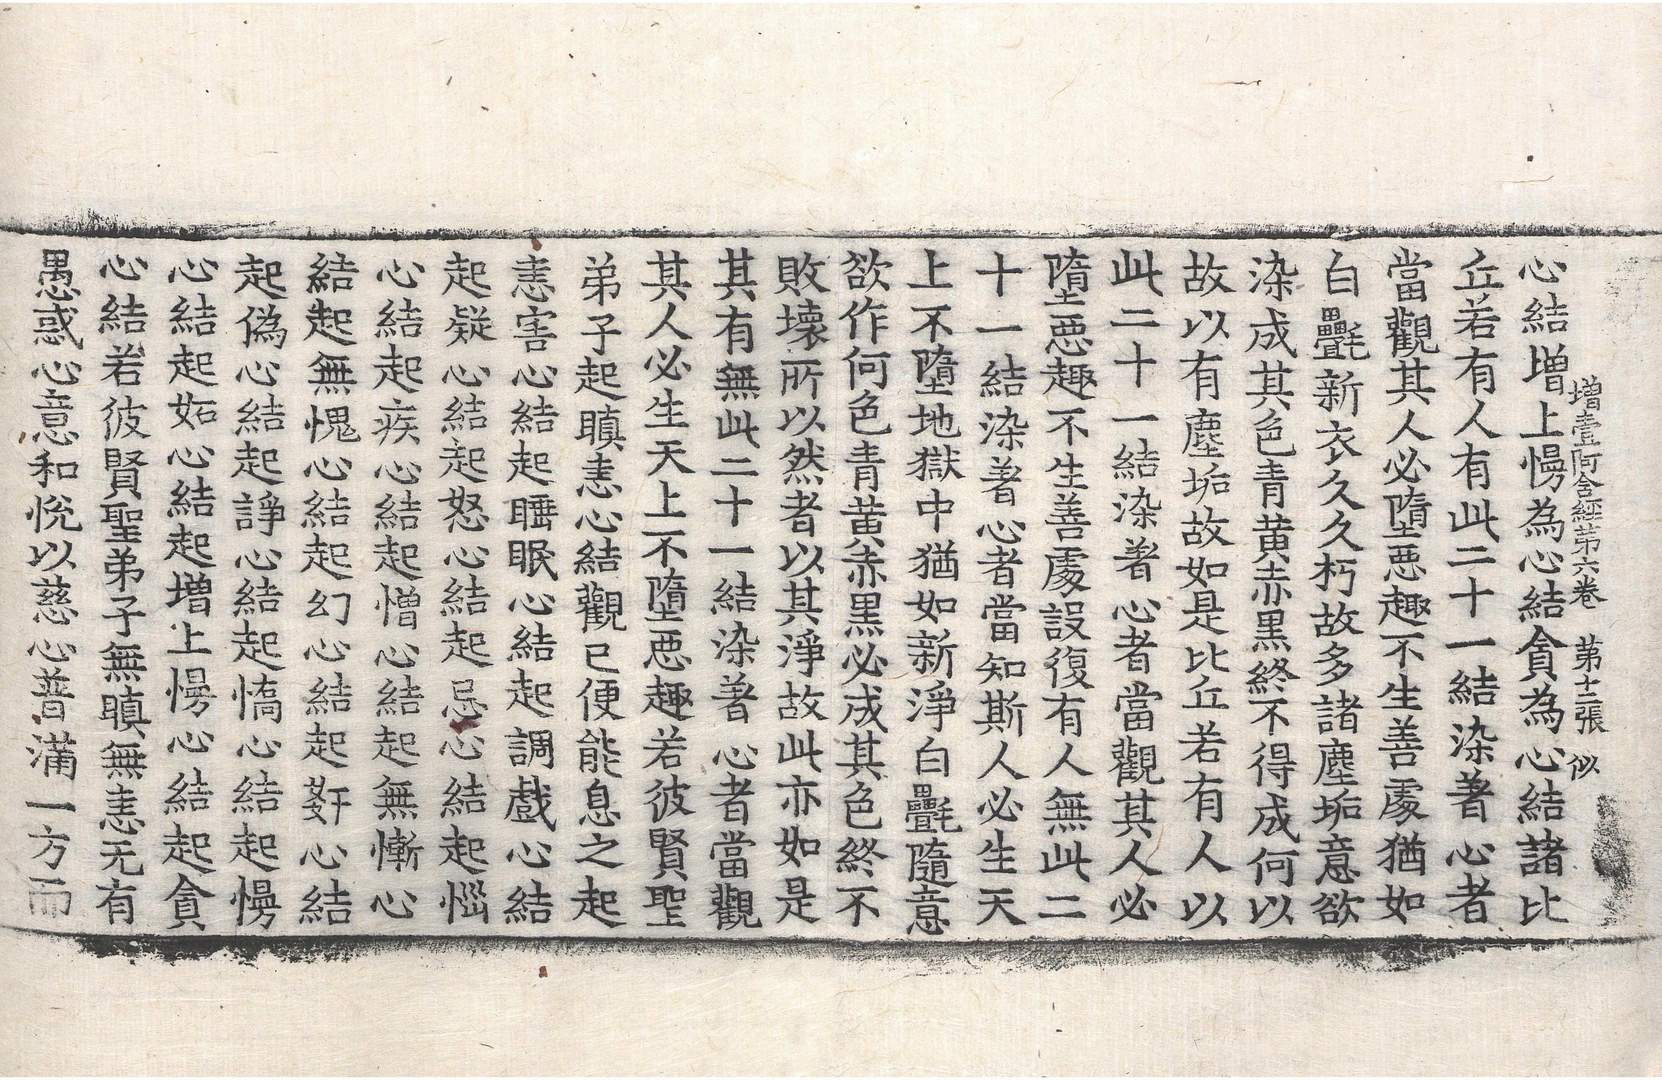 增壹阿含經第六卷　第十二張　似
心結增上慢為心結貪為心結諸比
丘若有人有此二十一結染著心者
當觀其人必墮惡趣不生善處猶如
白㲲新衣久久朽故多諸塵垢意欲
染成其色青黃赤黑終不得成何以
故以有塵垢故如是比丘若有人以
此二十一結染著心者當觀其人必
墮惡趣不生善處設復有人無此二
十一結染著心者當知斯人必生天
上不墮地獄中猶如新淨白㲲隨意
欲作何色青黃赤黑必成其色終不
敗壞所以然者以其淨故此亦如是
其有無此二十一結染著心者當觀
其人必生天上不墮惡趣若彼賢聖
弟子起瞋恚心結觀已便能息之起
恚害心結起睡眠心結起調戲心結
起疑心結起怒心結起忌心結起惱
心結起疾心結起憎心結起無慚心
結起無愧心結起幻心結起姧心結
起偽心結起諍心結起憍心結起慢
心結起妬心結起增上慢心結起貪
心結若彼賢聖弟子無瞋無恚无有
愚惑心意和悅以慈心普滿一方而